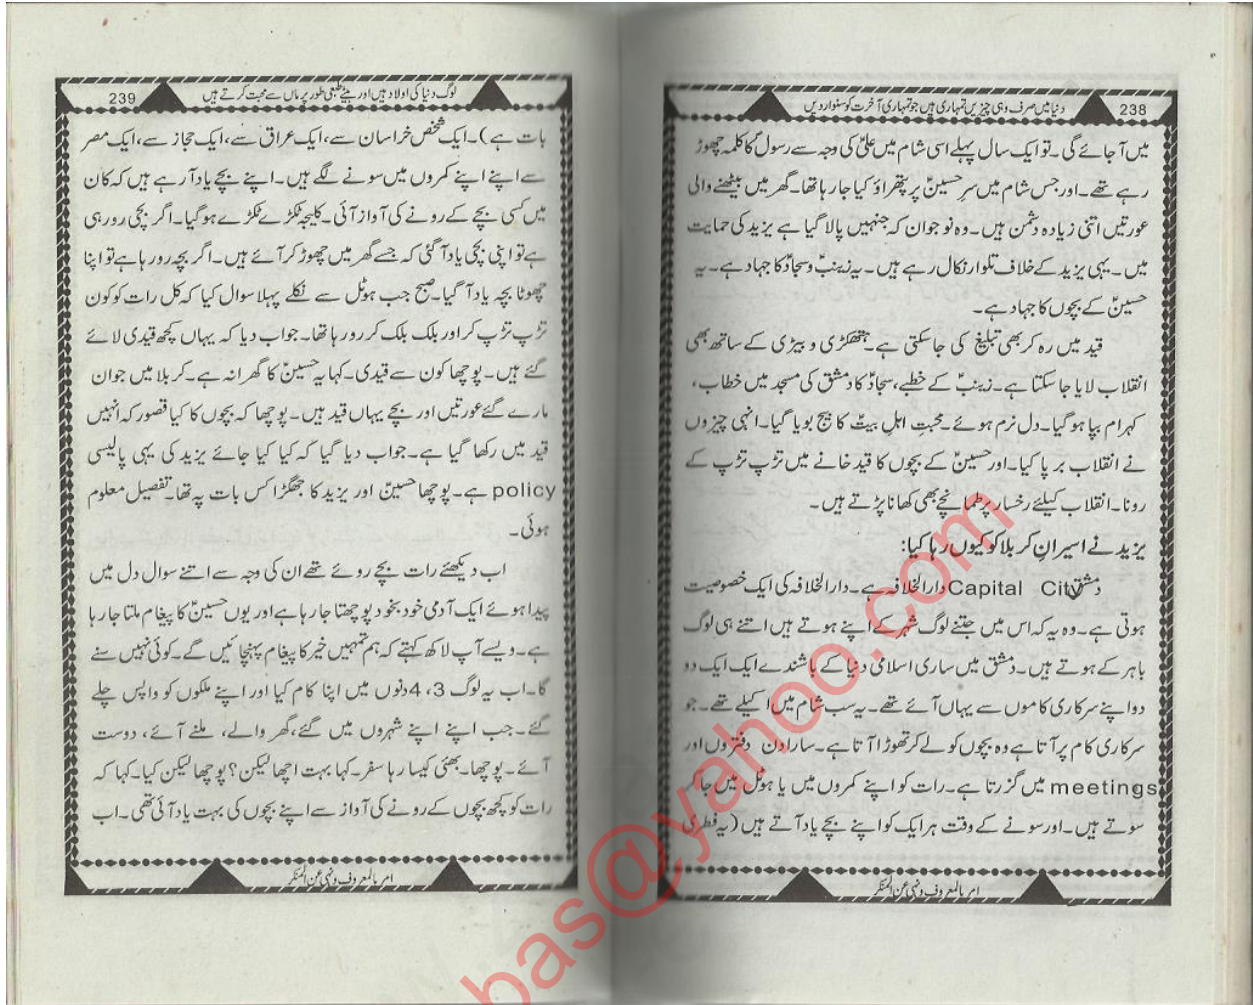 238
دنیا میں صرف وہی چیزیں تمہاری ہیں جو تمہاری آخرت کو سنوار دیں
میں آ جائے گی۔ تو ایک سال پہلے اسی شام میں علیؑ کی وجہ سے رسولؐ کا کلمہ چھوڑ
رہے تھے۔ اور جس شام میں سرِ حسینؑ پر پتھراؤ کیا جا رہا تھا۔ گھر میں بیٹھنے والی
عورتیں اتنی زیادہ دشمن ہیں۔ وہ نوجوان کہ جنہیں پالا گیا ہے یزید کی حمایت
میں۔ یہی یزید کے خلاف تلوار نکال رہے ہیں۔ یہ زینبؑ و سجادؑ کا جہاد ہے۔ یہ
حسینؑ کے بچوں کا جہاد ہے۔
قید میں رہ کر بھی تبلیغ کی جا سکتی ہے۔ ہتھکڑی و بیڑی کے ساتھ بھی
انقلاب لایا جا سکتا ہے۔ زینبؑ کے خطبے، سجادؑ کا دمشق کی مسجد میں خطاب،
کہرام بپا ہو گیا۔ دل نرم ہوئے۔ محبتِ اہلِ بیتؑ کا بیج بویا گیا۔ انہی چیزوں
نے انقلاب برپا کیا۔ اور حسینؑ کے بچوں کا قید خانے میں تڑپ تڑپ کے
رونا۔ انقلاب کیلئے رخسار پر طمانچے بھی کھانا پڑتے ہیں۔
یزید نے اسیرانِ کربلا کو کیوں رہا کیا:
دمشق Capital City دارالخلافہ ہے۔ دارالخلافہ کی ایک خصوصیت
ہوتی ہے۔ وہ یہ کہ اس میں جتنے لوگ شہر کے اپنے ہوتے ہیں اتنے ہی لوگ
باہر کے ہوتے ہیں۔ دمشق میں ساری اسلامی دنیا کے باشندے ایک ایک دو
دو اپنے سرکاری کاموں سے یہاں آئے تھے۔ یہ سب شام میں اکیلے تھے۔ جو
سرکاری کام پر آتا ہے وہ بچوں کو لے کر تھوڑا آتا ہے۔ سارا دن دفتروں اور
meetings میں گزرتا ہے۔ رات کو اپنے کمروں میں یا ہوٹل میں جا کر
سوتے ہیں۔ اور سونے کے وقت ہر ایک کو اپنے بچے یاد آتے ہیں (یہ فطری
امر بالمعروف و نہی عن المنکر
لوگ دنیا کی اولاد ہیں اور بیٹے طبعی طور پر ماں سے محبت کرتے ہیں
239
بات ہے)۔ ایک شخص خراسان سے، ایک عراق سے، ایک حجاز سے، ایک مصر
سے اپنے اپنے کمروں میں سونے لگے ہیں۔ اپنے بچے یاد آ رہے ہیں کہ کان
میں کسی بچے کے رونے کی آواز آئی۔ کلیجہ ٹکڑے ٹکڑے ہو گیا۔ اگر بچی رو رہی
ہے تو اپنی بچی یاد آ گئی کہ جسے گھر میں چھوڑ کر آئے ہیں۔ اگر بچہ رو رہا ہے تو اپنا
چھوٹا بچہ یاد آ گیا۔ صبح جب ہوٹل سے نکلے پہلا سوال کیا کہ کل رات کو کون
تڑپ تڑپ کر اور بلک بلک کر رو رہا تھا۔ جواب دیا کہ یہاں کچھ قیدی لائے
گئے ہیں۔ پوچھا کون سے قیدی۔ کہا یہ حسینؑ کا گھرانہ ہے۔ کربلا میں جوان
مارے گئے عورتیں اور بچے یہاں قید ہیں۔ پوچھا کہ بچوں کا کیا قصور کہ انہیں
قید میں رکھا گیا ہے۔ جواب دیا گیا کہ کیا کیا جائے یزید کی یہی پالیسی
policy ہے۔ پوچھا حسینؑ اور یزید کا جھگڑا کس بات پہ تھا۔ تفصیل معلوم
ہوئی۔
اب دیکھئے رات بچے روئے تھے ان کی وجہ سے اتنے سوال دل میں
پیدا ہوئے ایک آدمی خود بخود پوچھتا جا رہا ہے اور یوں حسینؑ کا پیغام ملتا جا رہا
ہے۔ ویسے آپ لاکھ کہتے کہ ہم تمہیں خیر کا پیغام پہنچائیں گے۔ کوئی نہیں سنے
گا۔ اب یہ لوگ 3، 4 دنوں میں اپنا کام کیا اور اپنے ملکوں کو واپس چلے
گئے۔ جب اپنے اپنے شہروں میں گئے، گھر والے، ملنے آئے، دوست
آئے۔ پوچھا۔ بھئی کیسا رہا سفر۔ کہا بہت اچھا لیکن؟ پوچھا لیکن کیا۔ کہا کہ
رات کو کچھ بچوں کے رونے کی آواز سے اپنے بچوں کی بہت یاد آئی تھی۔ اب
امر بالمعروف و نہی عن المنکر
bas@yahoo.com